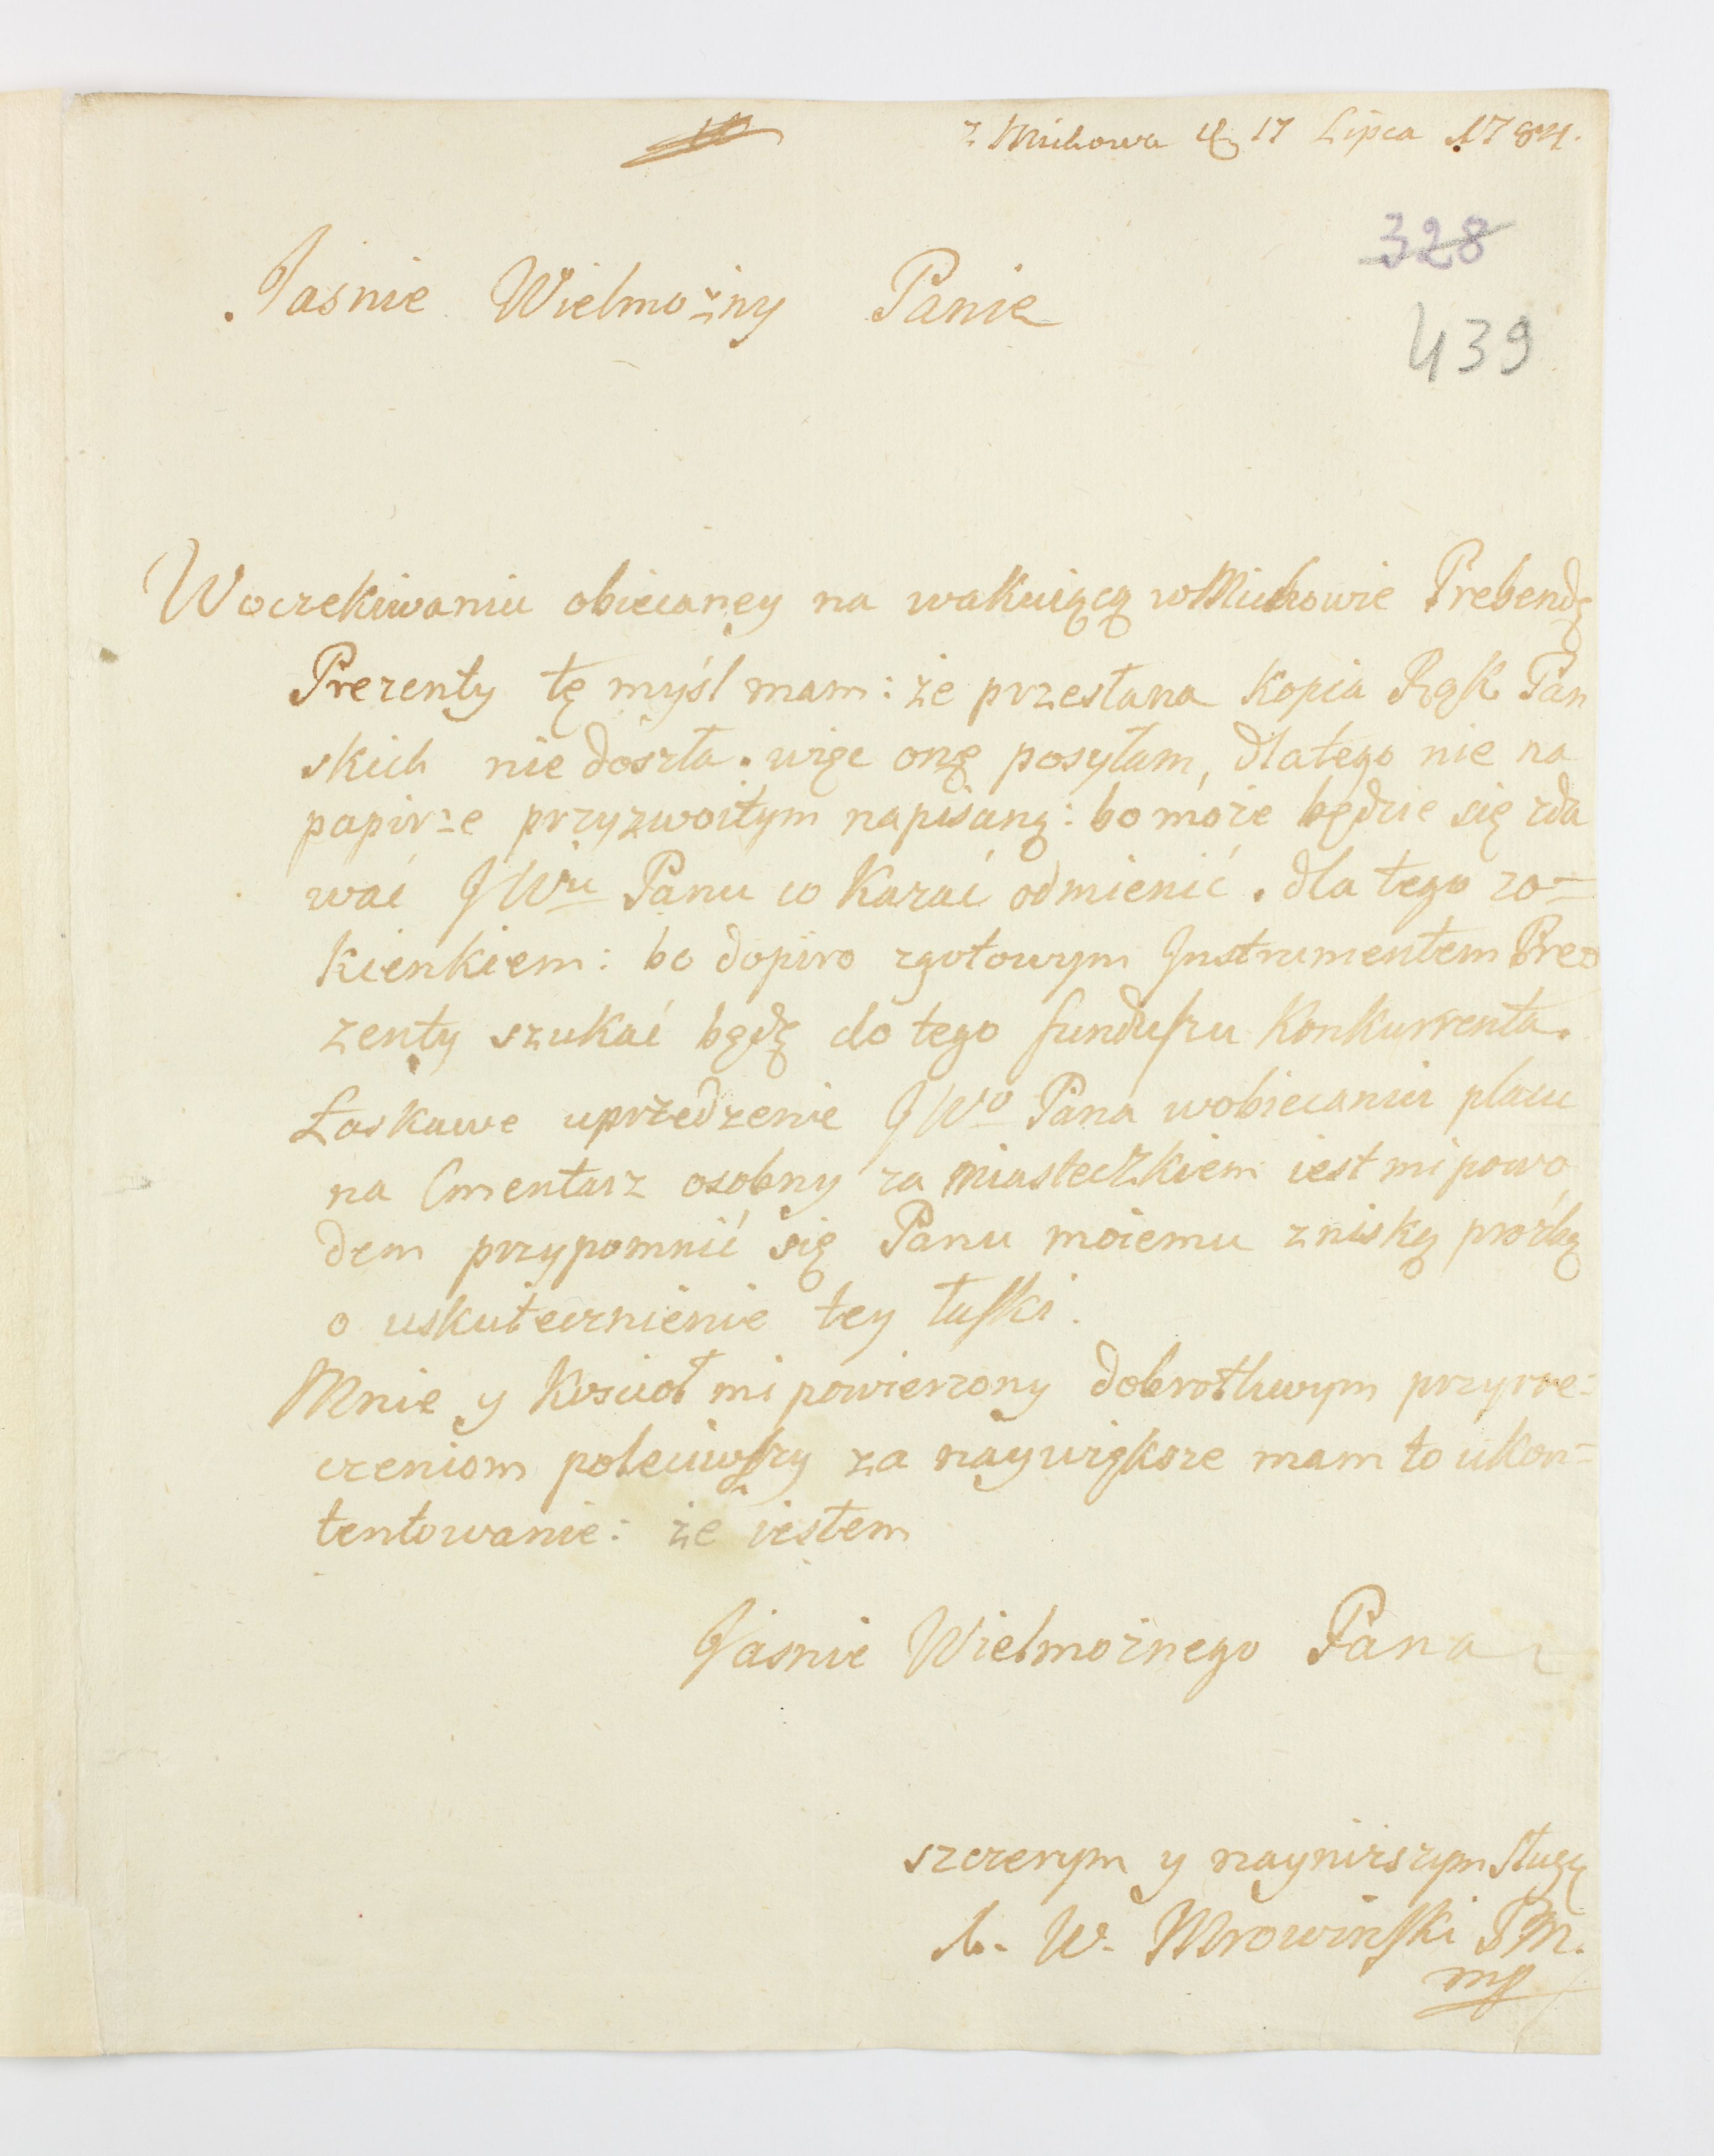 z Michowa d 17 Lipca 1784.
328
Jasnie Wielmożny Panie
439
W oczekiwaniu obiecaney na wakuiącą w Michowie Prebendę
Prezenty tę myśl mam: że przesłana kopia Rąk Pan
skich nie doszła. więc onę posyłam, dlatego nie na
papirze przyzwoitym napisaną: bo może będzie się zda
wać JWu Panu co kazać odmienić. dla tego zo=
kienkiem: bo dopiro zgotowym Instrumentem Pre
zenty szukać będę do tego funduszu Konkurrenta.
Łaskawe uprzedzenie JWo Pana wobiecaniu placu
na Cmentarz osobny za Miasteczkiem iest mi powo
dem przypomnić się Panu moiemu zniską proźbą
o uskutecznienie tey łaski.
Mnie y Kościoł mi powierzony dobrotliwym przyrze=
czeniom poleciwszy za naywiększe mam to ukon=
tentowanie: że iestem
Jasnie Wielmożnego Pana
szczerym y nayniższym sługą
W. Mrowinski PM.
mp